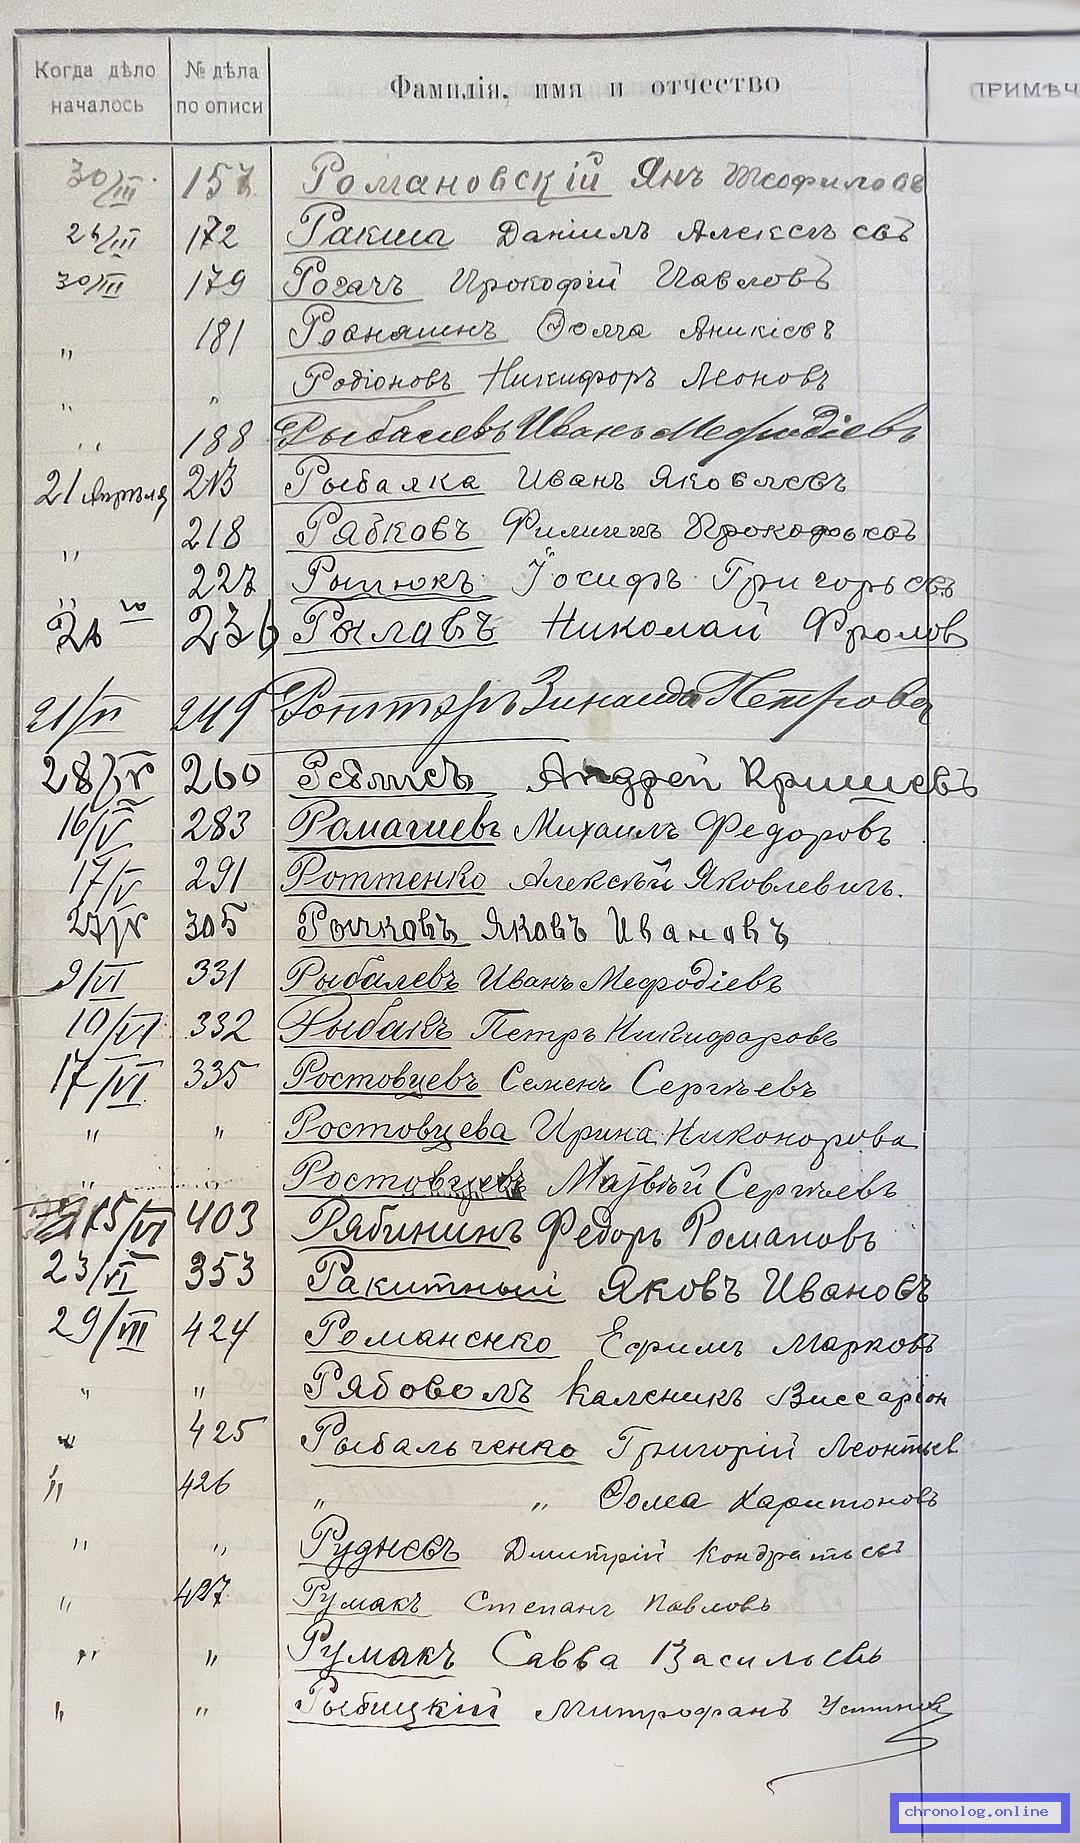 Когда дѣло началось
№ дѣла по описи
Фамилія, имя и отчество
ПРИМѢЧ
30/III 157 Романовскій Янъ Теофилов
26/III 172 Ракша Даніилъ Алексѣевъ
30/III 179 Рогачъ Прокофій Павловъ
" 181 Аникіевъ
" " Родіоновъ Никифоръ Леоновъ
" 188 Рыбалевъ Иванъ Мефодіевъ
21 Апрѣля 213 Рыбалка Иванъ Яковлевъ
" 218 Рябковъ Филиппъ Прокофьевъ
" 227 Іосифъ Григорьевъ
236 Рыловъ Николай Фролов
249 Зинаида Петрова
28/IV 260 Андрей
16/V 283 Михаилъ Федоровъ
17/V 291 Роттенко Алексѣй Яковлевичъ.
27/V 305 Рычковъ Яковъ Ивановъ
9/VI 331 Рыбалевъ Иванъ Мефодіевъ
10/VI 332 Рыбакъ Петръ Никифаровъ
17/VI 335 Ростовцевъ Семенъ Сергѣевъ
" " Ростовцева Ирина Никонорова
" " Ростовцевъ Матвѣй Сергѣевъ
15/VI 403 Рябининъ Федоръ Романовъ
23/VI 353 Ракитный Яковъ Ивановъ
29/VIII 424 Романенко Ефимъ Марковъ
" " Рябоволъ Каленикъ Виссаріон
" 425 Рыбальченко Григорій Леонтьев
" 426 " " Фома Харитоновъ
" " Рудневъ Дмитрій Кондратьевъ
" 427 Румакъ Степанъ Павловъ
" " Румакъ Савва Васильевъ
" " Рыбицкій Митрофанъ Устинов
chronolog.online